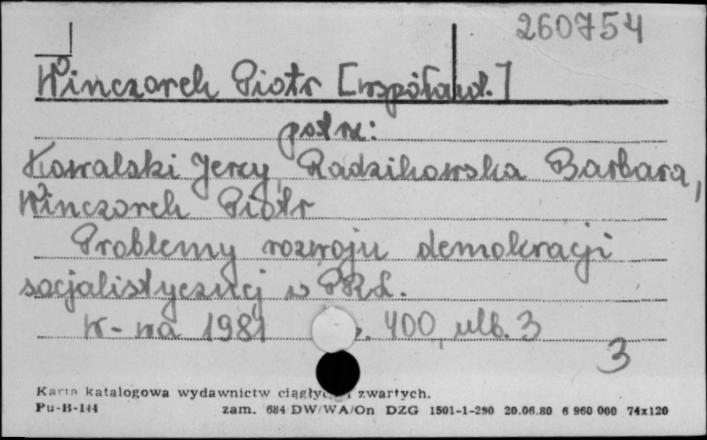 260754
Winczorek Piotr [współaut.]
patrz:
Kowalski Jerzy, Radzikowska Barbara,
Winczorek Piotr
Problemy rozwoju demokracji
socjalistycznej w PRL.
W-wa 1981 400, nlb. 3
3
Karta katalogowa wydawnictw ciągłych i zwartych.
Pu-B-144 zam. 684 DW/WA/On DZG 1501-1-290 20.06.80 6 960 000 74x120